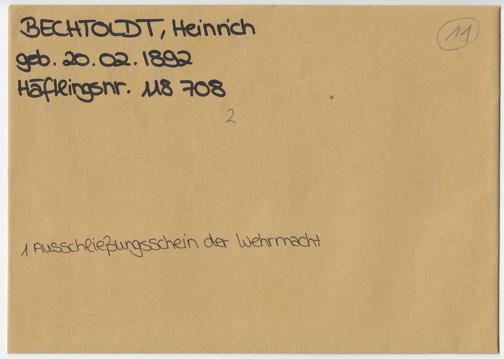 BECHTOLDT, Heinrich
11
geb. 20.02.1892
Häftlingsnr. 118 708
2
1 Ausschließungsschein der Wehrmacht